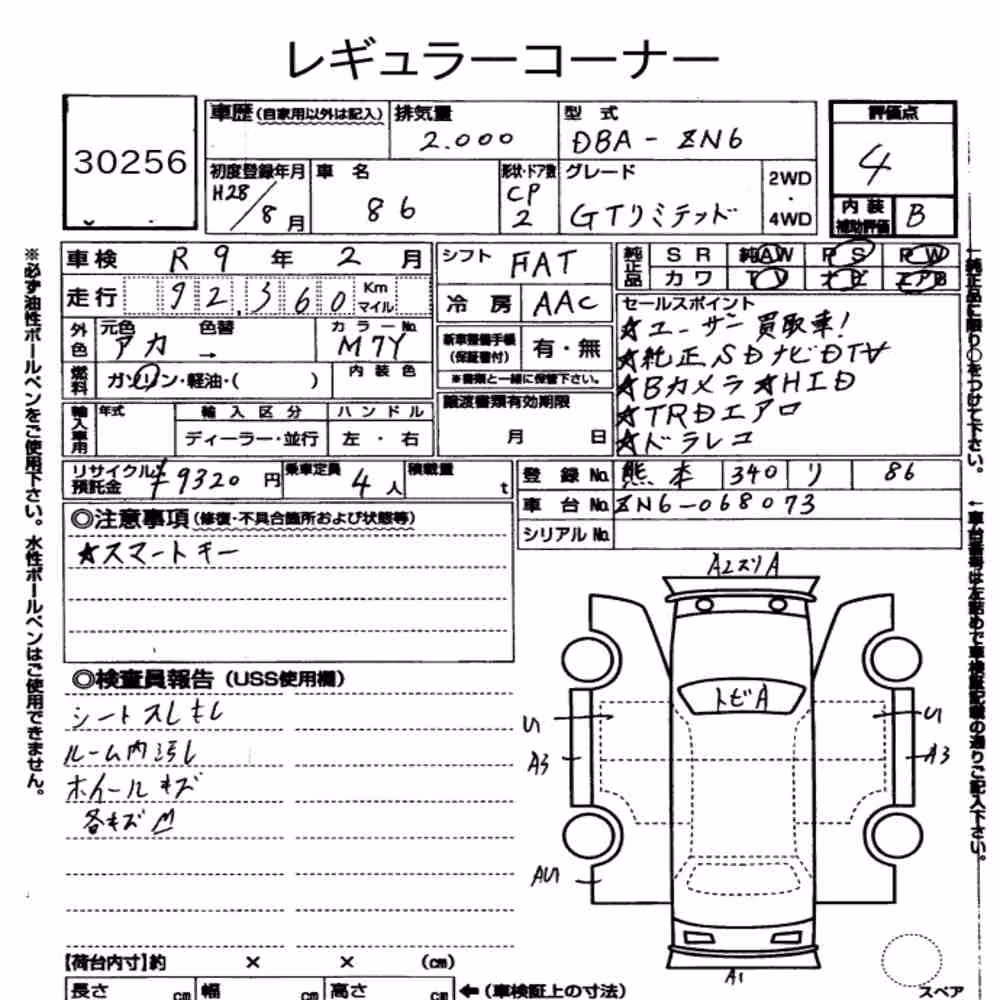 レギュラーコーナー
30256
車歴 (自家用以外は記入) 排気量 型式 評価点
2.000 DBA-ZN6 4
初度登録年月 車名 形状・ドア数 グレード 2WD・4WD
H28/8月 86 CP 2 GTリミテッド
内装補助評価 B
車検 R9年2月 シフト FAT
走行 92,360 Km マイル 冷房 AAC
純正品 SR 純AW PS PW
カワ TV ナビ エアB
外色 元色 アカ 色替 → カラーNo. M7Y
新車整備手帳(保証書付) 有・無
※書類と一緒に保管下さい。
燃料 ガソリン・軽油・( ) 内装色
譲渡書類有効期限 月 日
輸入車用 年式 輸入区分 ハンドル
ディーラー・並行 左・右
セールスポイント
★ユーザー買取車!
★純正SDナビDTV
★Bカメラ★HID
★TRDエアロ
★ドラレコ
リサイクル預託金 ¥9320円 乗車定員 4人 積載量 t
登録No. 熊本 340 リ 86
車台No. ZN6-068073
シリアルNo.
◎注意事項 (修復・不具合箇所および状態等)
★スマートキー
◎検査員報告 (USS使用欄)
シートスレキレ
ルーム内汚レ
ホイールキズ
各キズ凹
A2スリA
トビA
U1 U1
A3 A3
AU1
A1
スペア
【荷台内寸】約 × × (cm)
長さ cm 幅 cm 高さ cm ←(車検証上の寸法)
※必ず油性ボールペンをご使用下さい。水性ボールペンはご使用できません。
↑純正品に限り○をつけて下さい。
↑車台番号は左詰めで車検証記載の通りご記入下さい。